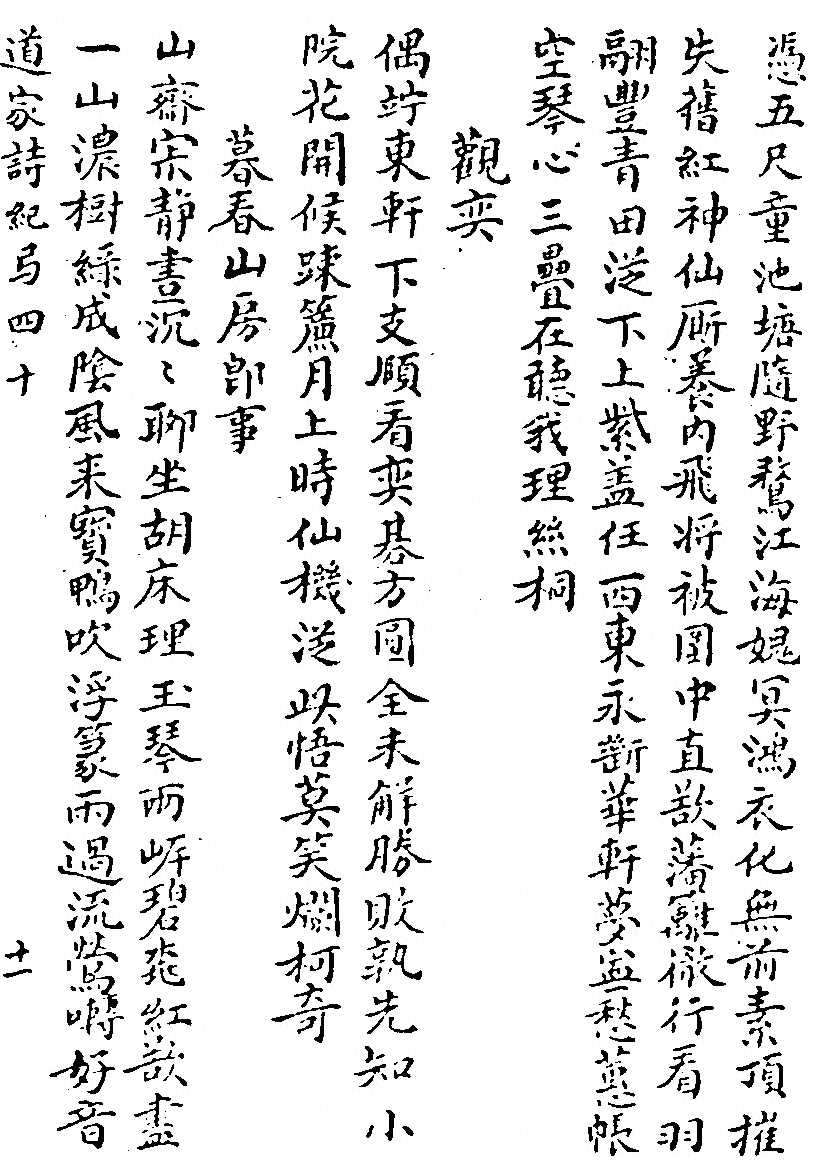 憑五尺童池塘隨野鶩江海媿冥鴻衣化無前素頂摧
失舊紅神仙厮養內飛將被圍中直欲藩籬徹行看羽
翮豐青田從下上紫蓋任西東永斷華軒夢寧愁蕙帳
空琴心三疊在聽我理絲桐
觀奕
偶竚東軒下支頤看奕棊方圓全未解勝敗孰先知小
院花開候踈簾月上時仙機從此悟莫笑爛柯奇
暮春山房即事
山齋宋靜晝沉〻聊坐胡床理玉琴兩岸碧桃紅欲盡
一山濃樹綠成陰風来寶鴨吹浮篆雨過流鶯囀好音
道家詩紀弓四十
十一